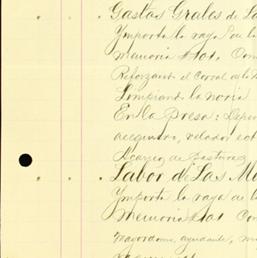 Gastos Grales de La
Importe la raya de la
Memoria Com
Reforzando el Corral de la
Limpiando la noria
En la Presa:
acequiero, velador
Acarreo de pasturas
Labor de Las M
Importe la raya de la
Memoria Com
Mayordomo, ayudante, m